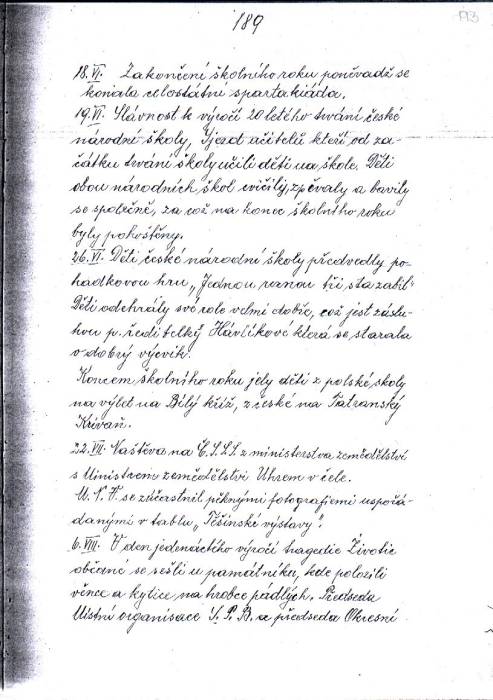 189
193
18.VI. Zakončení školního roku poněvadž se
konala celostátní spartakiáda.
19.VI. Slávnost k výročí 20 letého trvání české
národní školy, Sjezd učitelů kteří od za-
čátku trvání školy učili děti na škole. Děti
obou národních škol cvičily, zpěvaly a bavily
se společně, za což na konec školního roku
byly pohoštěny.
26.VI. Děti české národní školy předvedly po-
hádkovou hru „Jednou ranou tři sta zabil"
Děti odehrály své role velmi dobře, což jest záslu-
hou p. ředitelky Hávlíkové která se starala
o dobrý výcvik.
Koncem školního roku jely děti z polské školy
na výlet na Bílý kříž, z české na Tatranský
Kriváň.
22.VII. Naštěva na Č.S.S.S. z ministerstva zemědělství
s Ministrem zemědělství Uhrem v čele.
M.N.V. se zúčastnil pěknými fotografiemi uspořá-
danými v tablu „Těšínské výstavy".
6.VIII. V den jedenáctého výročí tragedie Životic
občané se sešli u památníku, kde položili
věnce a kytice na hrobce pádlých. Předseda
Místní organisace S.P.B. a předseda Okresní